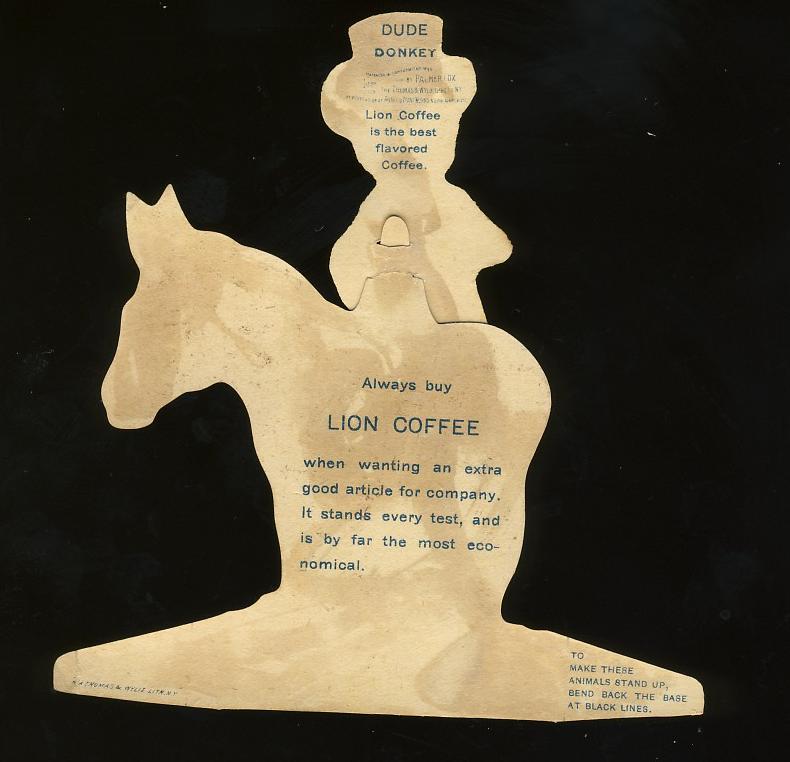 DUDE
DONKEY
BY PALMER COX
THE THOMAS & WYLIE LITH. NY
Lion Coffee
is the best
flavored
Coffee.
Always buy
LION COFFEE
when wanting an extra
good article for company.
It stands every test, and
is by far the most eco-
nomical.
THOMAS & WYLIE LITH. N.Y
TO
MAKE THESE
ANIMALS STAND UP,
BEND BACK THE BASE
AT BLACK LINES.